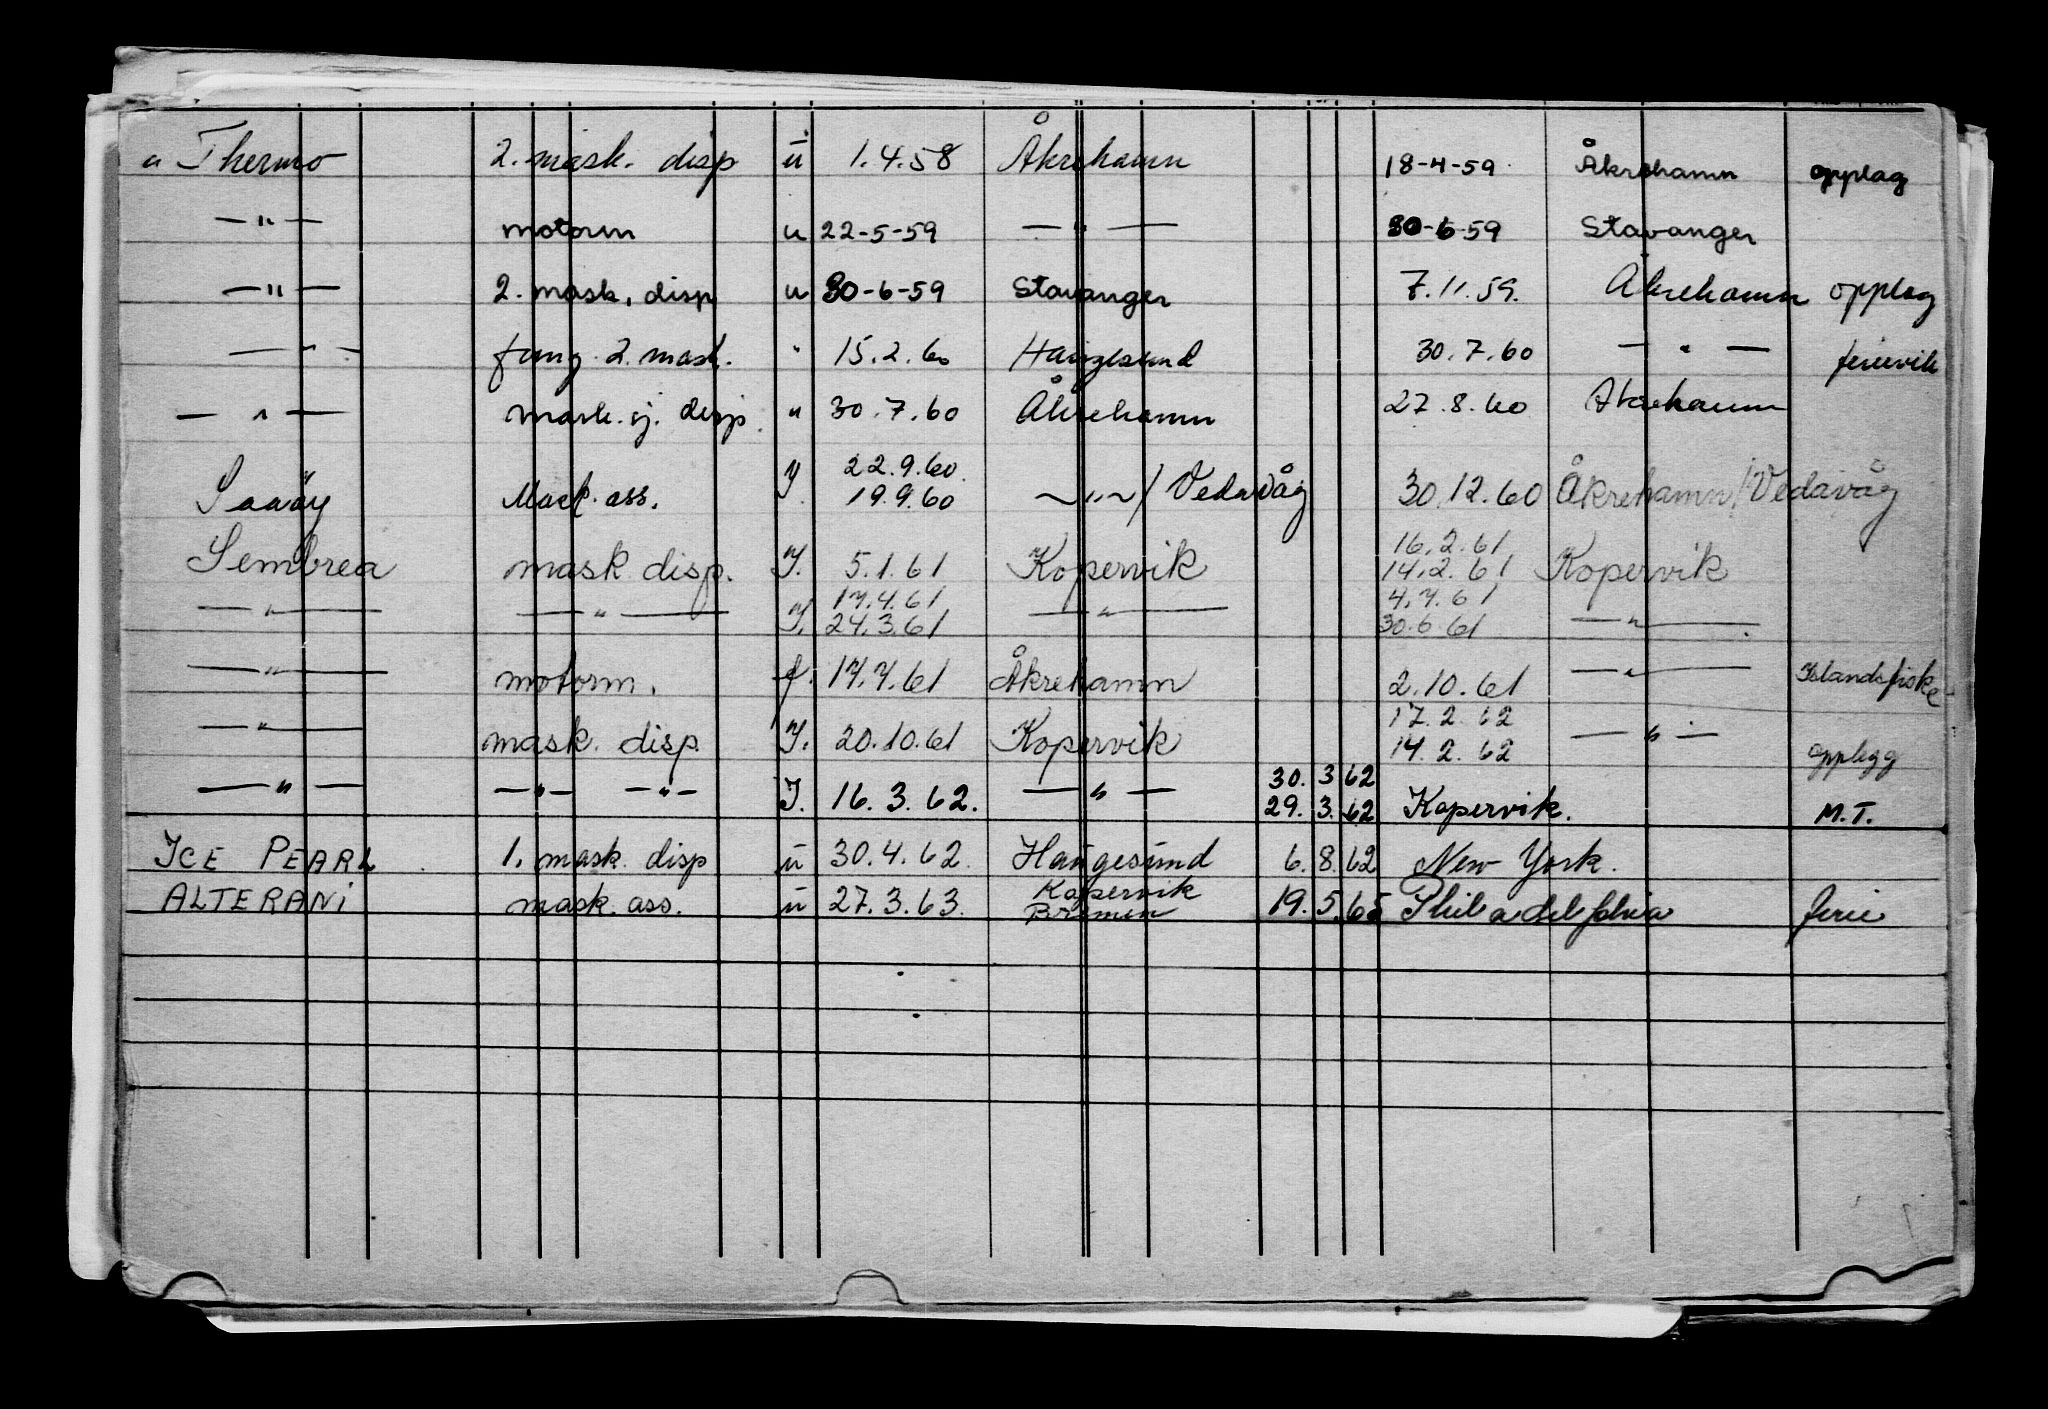 " Thermo 2. mask. disp u 1.4.58 Åkrehamn 18-4-59 Åkrehamn opplag
— " — motorm u 22-5-59 — " — 30-6-59 Stavanger
— " — 2. mask. disp u 30-6-59 Stavanger 7.11.59. Åkrehamn opplag
— " — fung. 2. mask. " 15.2.60 Haugesund 30.7.60 — " — ferievik
— " — mask. disp. " 30.7.60 Åkrehamn 27.8.60 Åkrehamn
22.9.60
Mask. ass. I. 19.9.60 ~ " ~ / Vedavåg 30.12.60 Åkrehamn/Vedavåg
16.2.61
Sembrea mask disp. I. 5.1.61 Kopervik 14.2.61 Kopervik
17.4.61 4.7.61
— " — — " — I. 24.3.61 — " — 30.6.61 — " —
— " — motorm. f. 17.7.61 Åkrehamn 2.10.61 — " — Islandsfiske
17.2.62
— " — mask. disp I. 20.10.61 Kopervik 14.2.62 — " — opplegg
30.3.62
— " — — " — — " — I. 16.3.62. — " — 29.3.62 Kopervik. M.T.
ICE PEARL 1. mask. disp u 30.4.62. Haugesund 6.8.62 New York.
Kopervik
ALTERANi mask. ass. u 27.3.63. Bremen 19.5.65 Philadelphia ferie